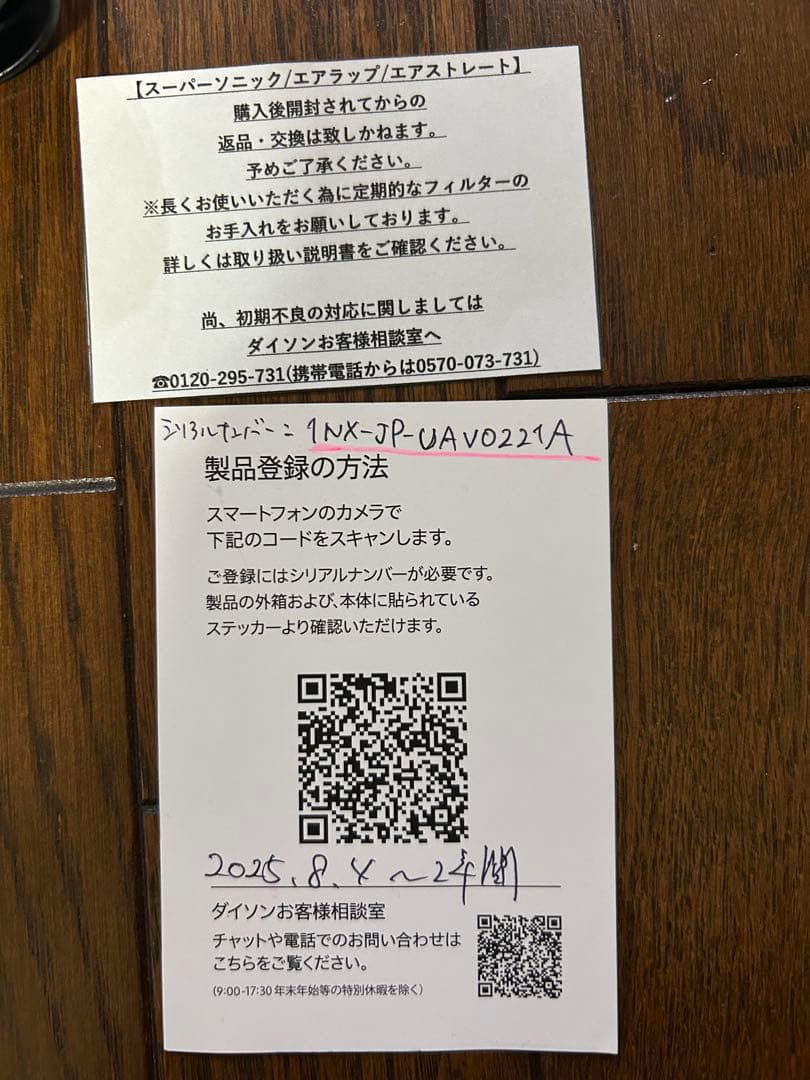 【スーパーソニック/エアラップ/エアストレート】
購入後開封されてからの
返品・交換は致しかねます。
予めご了承ください。
※長くお使いいただく為に定期的なフィルターの
お手入れをお願いしております。
詳しくは取り扱い説明書をご確認ください。
尚、初期不良の対応に関しましては
ダイソンお客様相談室へ
☎0120-295-731(携帯電話からは0570-073-731)
シリアルナンバー: 1NX-JP-UAV0221A
製品登録の方法
スマートフォンのカメラで
下記のコードをスキャンします。
ご登録にはシリアルナンバーが必要です。
製品の外箱および、本体に貼られている
ステッカーより確認いただけます。
2025.8.4~2年間
ダイソンお客様相談室
チャットや電話でのお問い合わせは
こちらをご覧ください。
(9:00-17:30 年末年始等の特別休暇を除く)